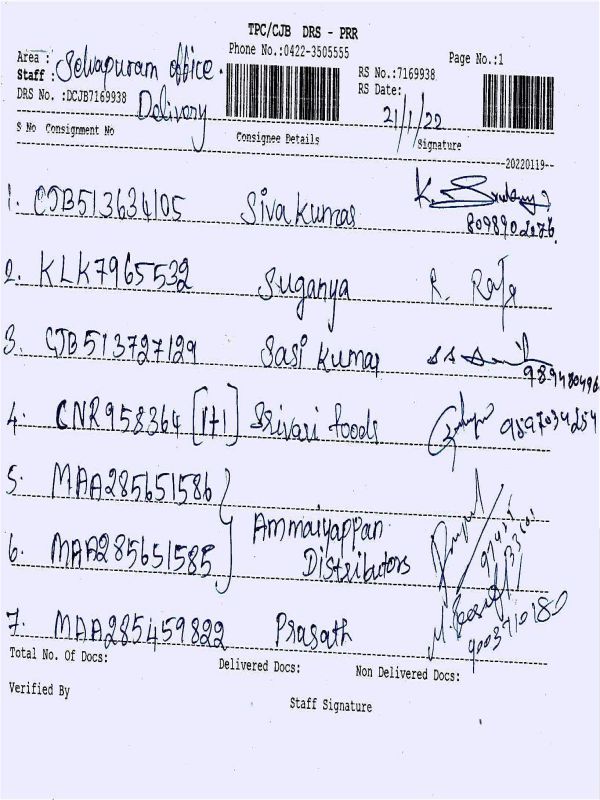 TPC/CJB DRS - PRR
Phone No.:0422-3505555
Page No.:1
Area : Selvapuram office.
Staff : Delivery
RS No.:7169938
DRS No. :DCJB7169938
RS Date: 21/1/22
S No Consignment No Consignee Details Signature
20220119
1. CJB513634105 Sivakumar K.
8098902276
2. KLK7965532 Suganya R. Raja
3. CJB513727129 Sasi kumar
989480496
4. CNR958364 [1+1] Srivari foods 9597034254
5. MAA285651586
6. MAA285651585 Ammaiyappan Distributors
7. MAA285459822 Prasath
9003710180
Total No. Of Docs: Delivered Docs: Non Delivered Docs:
Verified By Staff Signature